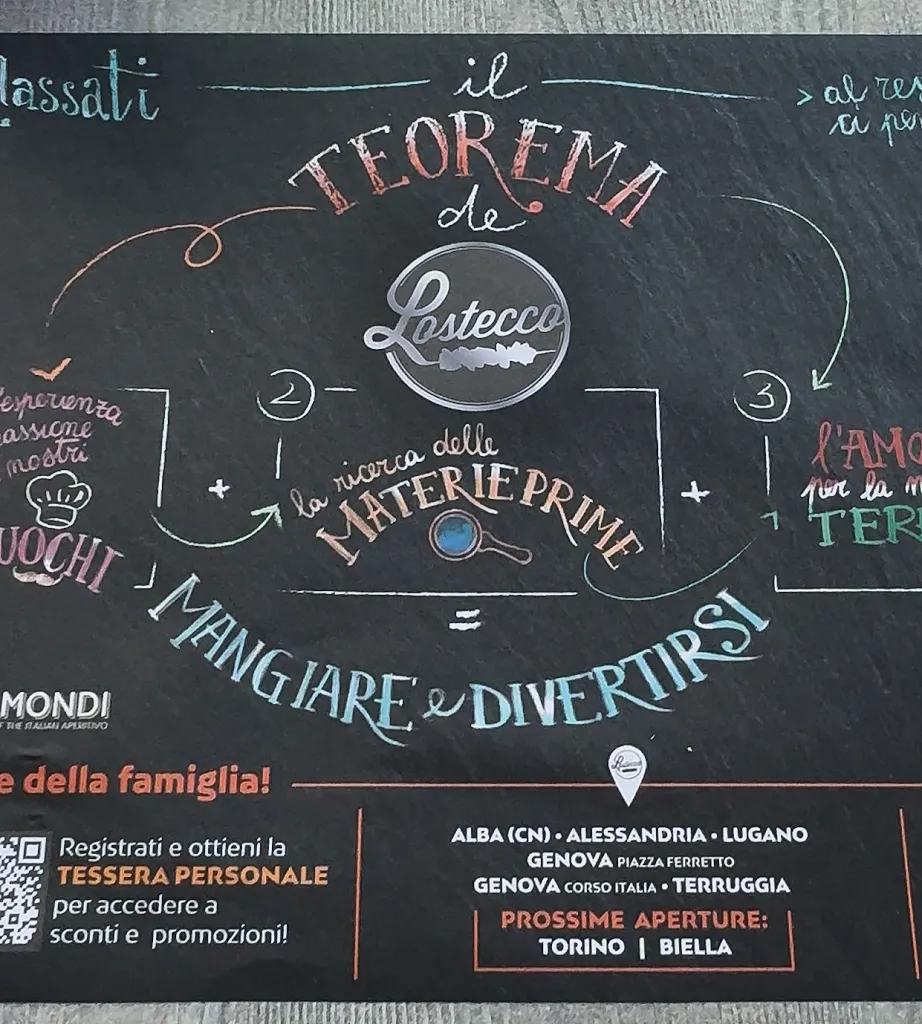 lassati
il
> al res
ci per
TEOREMA
de
Lostecco
2
3
'esperienza
passione
nostri
UOCHI
+
la ricerca delle
MATERIE PRIME
+
l'AMO
per la n
TER
=
MANGIARE e DIVERTIRSI
MONDI
F THE ITALIAN APERITIVO
e della famiglia!
Lostecco
Registrati e ottieni la
TESSERA PERSONALE
per accedere a
sconti e promozioni!
ALBA (CN) • ALESSANDRIA • LUGANO
GENOVA PIAZZA FERRETTO
GENOVA CORSO ITALIA • TERRUGGIA
PROSSIME APERTURE:
TORINO | BIELLA